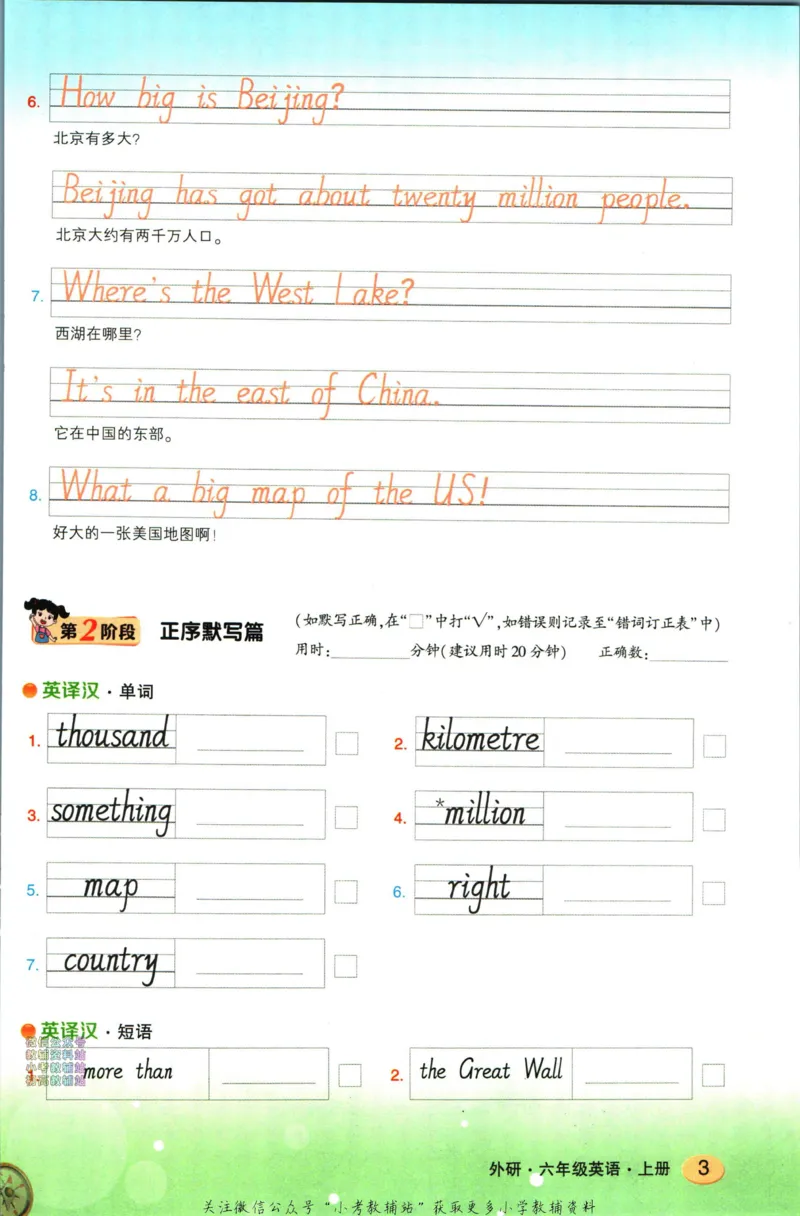 6. How big is Beijing?
北京有多大?
Beijing has got about twenty million people.
北京大约有两千万人口。
7. Where's the West Lake?
西湖在哪里?
It's in the east of China.
它在中国的东部。
8. What a big map of the US!
好大的一张美国地图啊!
第2阶段 正序默写篇 (如默写正确,在“□”中打“√”,如错误则记录至“错词订正表”中)
用时:________分钟(建议用时20分钟) 正确数:________
英译汉·单词
1. thousand 2. kilometre
3. something 4. *million
5. map 6. right
7. country
英译汉·短语
微信公众号
教辅资料站
小考教辅站
1. more than 2. the Great Wall
外研·六年级英语·上册 3
关注微信公众号“小考教辅站”获取更多小学教辅资料